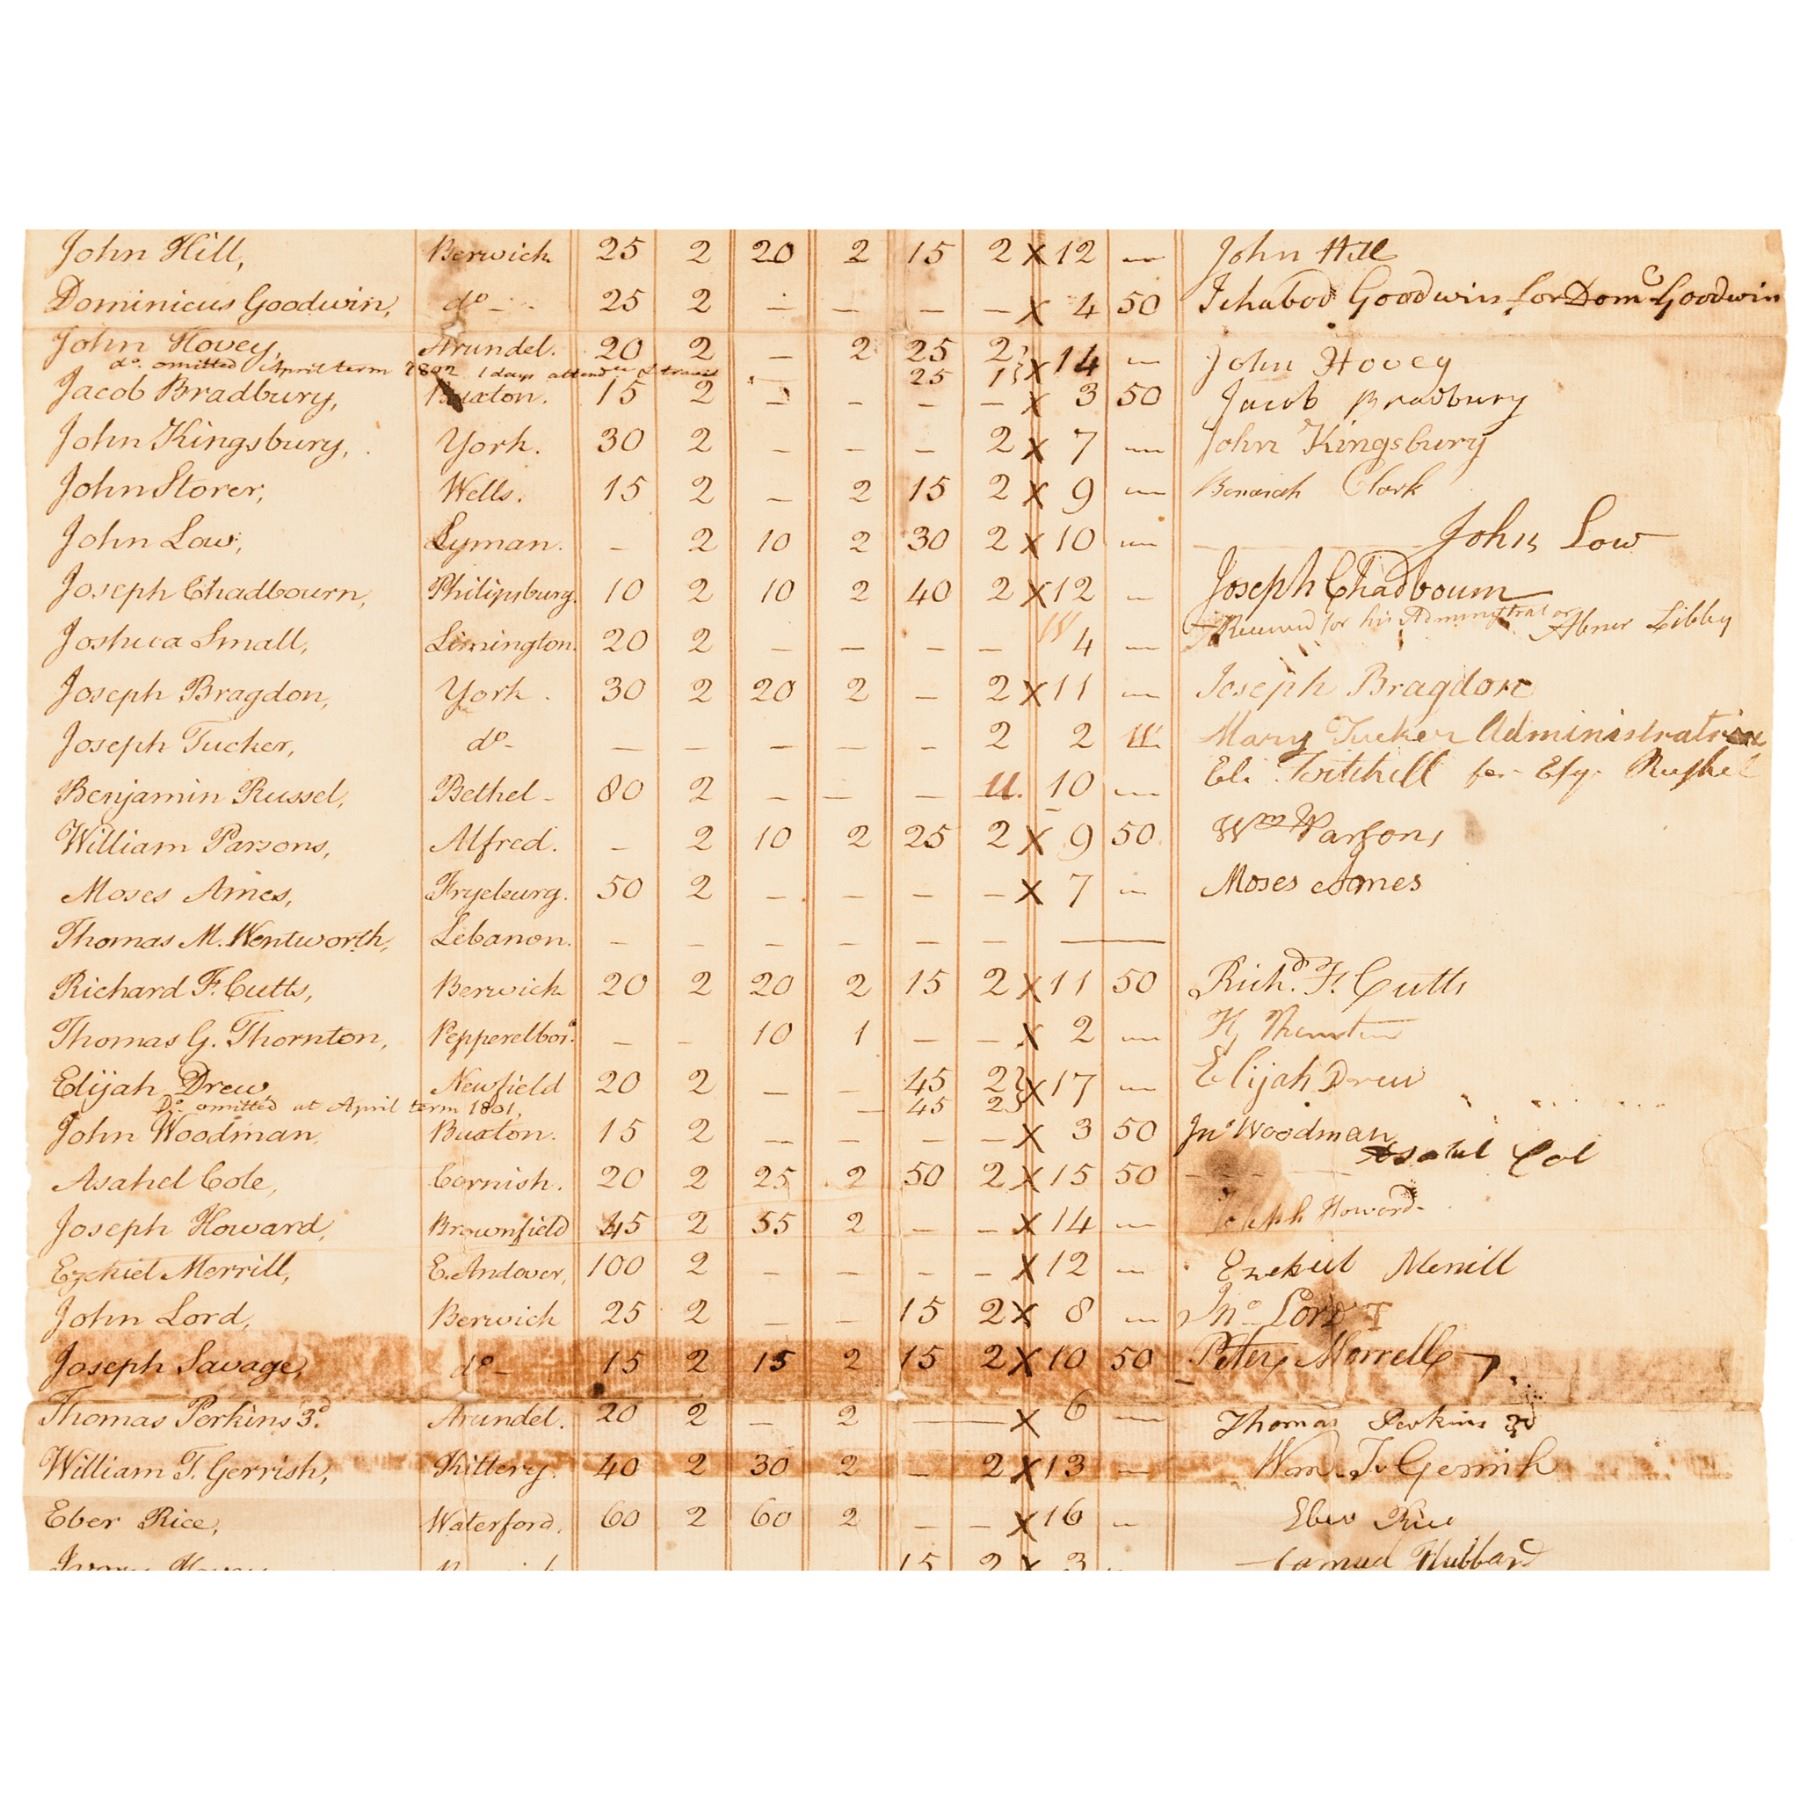 John Hill, Berwick 25 2 20 2 15 2 X 12 — John Hill
Dominicus Goodwin, do - 25 2 — — — — X 4 50 Ichabod Goodwin for Domc Goodwin
John Hovey, Arundel. 20 2 — 2 25 2 X 14 — John Hovey
do. omitted April term 1802 1 days attendce & travel 25 1
Jacob Bradbury, Buxton. 15 2 — — — — X 3 50 Jacob Bradbury
John Kingsbury, York. 30 2 — — — 2 X 7 — John Kingsbury
John Storer, Wells. 15 2 — 2 15 2 X 9 — Clark
John Low, Lyman. — 2 10 2 30 2 X 10 — John Low
Joseph Chadbourn, Philipsburg. 10 2 10 2 40 2 X 12 — Joseph Chadbourn
Joshua Small, Limington. 20 2 — — — — 4 — Received for his Administrator Abner Libby
Joseph Bragdon, York. 30 2 20 2 — 2 X 11 — Joseph Bragdon
Joseph Tucker, do - — — — — — 2 2 Mary Tucker Administratrix
Benjamin Russel, Bethel - 80 2 — — — 10 — Eli Twitchell for
William Parsons, Alfred. — 2 10 2 25 2 X 9 50 Wm Parsons
Moses Ames, Fryeburg. 50 2 — — — — X 7 — Moses Ames
Thomas M. Wentworth, Lebanon. — — — — — — —
Richard F. Cutts, Berwick 20 2 20 2 15 2 X 11 50 Richd. F. Cutts
Thomas G. Thornton, Pepperelboro. — — 10 1 — — X 2 —
Elijah Drew, Newfield 20 2 — — 45 2 X 17 — Elijah Drew
Do. omitted at April term 1801, — 45 2
John Woodman Buxton. 15 2 — — — — X 3 50 Jno Woodman
Asahel Cole, Cornish. 20 2 25 2 50 2 X 15 50 Asahel Col
Joseph Howard, Brownfield 45 2 55 2 — — X 14 — Joseph Howard
Ezekiel Merrill, E. Andover, 100 2 — — — — X 12 — Ezekiel Merrill
John Lord, Berwick 25 2 — — 15 2 X 8 — Jno Lord
Joseph Savage, do - 15 2 15 2 15 2 X 10 50 Peter Morrell
Thomas Perkins 3d. Arundel. 20 2 — 2 — X 6 — Thomas Perkins 3d
William T. Gerrish, Kittery. 40 2 30 2 — 2 X 13 — Wm. T. Gerrish
Eber Rice, Waterford. 60 2 60 2 — — X 16 — Eber Rice
15 2 X 3 Samuel Hubbard